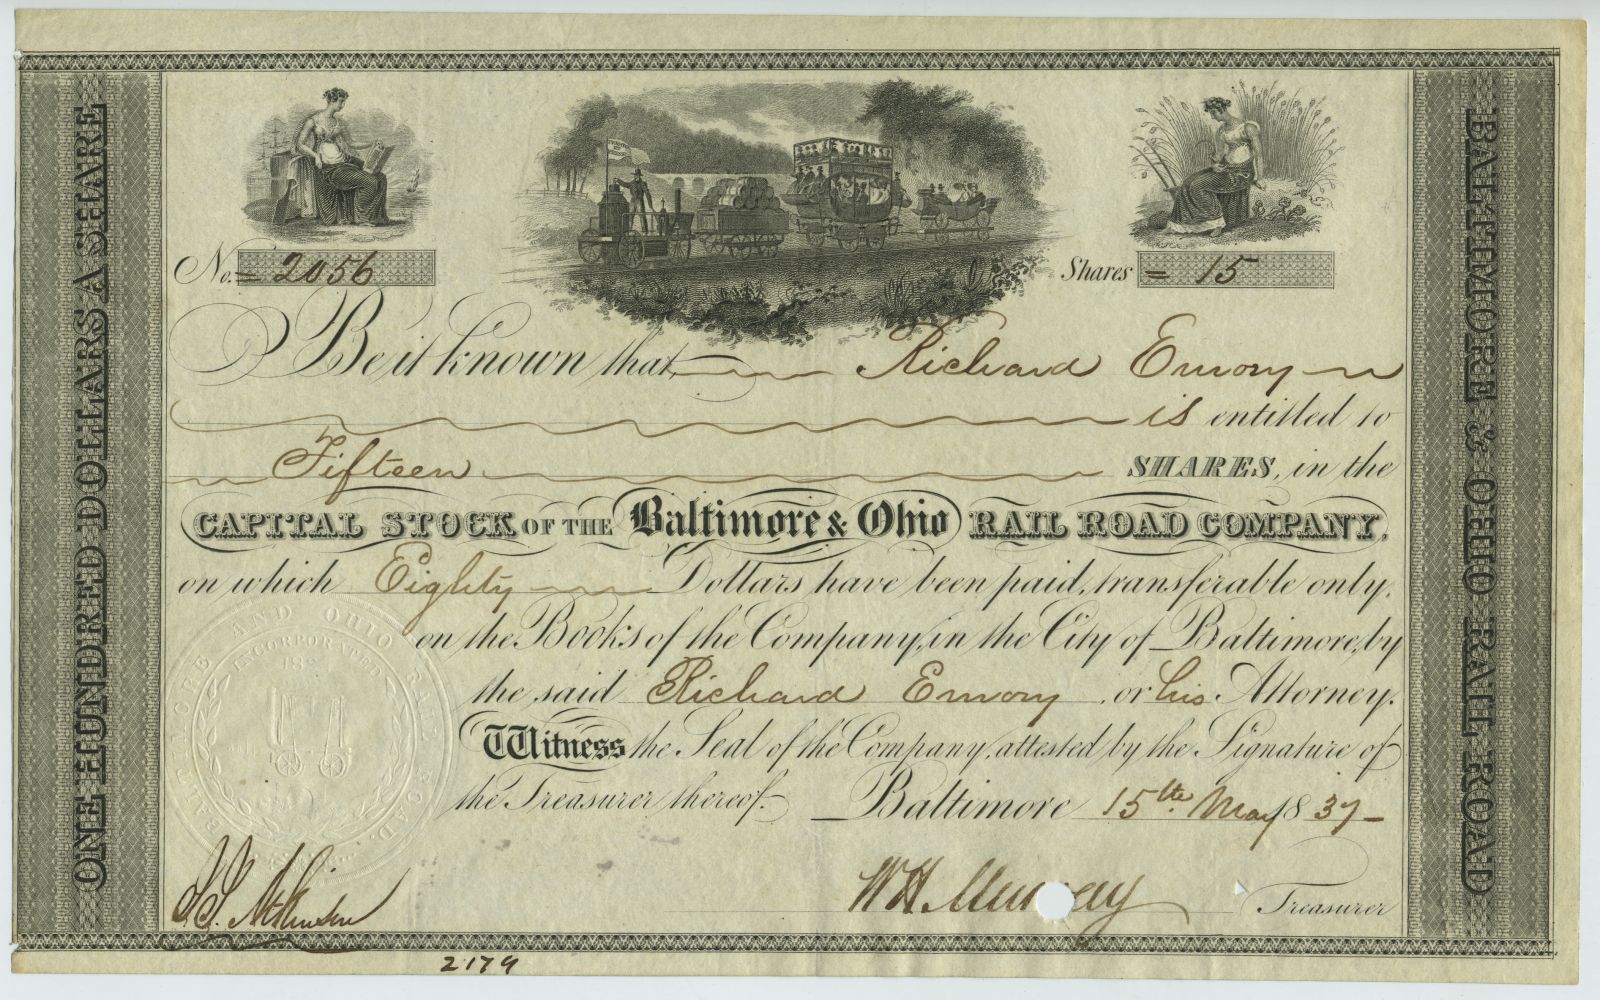 No. = 2056
Shares = 15
Be it known that, Richard Emory
is entitled to
Fifteen SHARES, in the
CAPITAL STOCK OF THE Baltimore & Ohio RAIL ROAD COMPANY,
on which Eighty Dollars have been paid, transferable only,
on the Books of the Company, in the City of Baltimore, by
the said Richard Emory or his Attorney.
Witness the Seal of the Company, attested by the Signature of
the Treasurer thereof.
Baltimore 15th May 1837
J. J. Atkinson
W H Murray Treasurer
2179
ONE HUNDRED DOLLARS A SHARE
BALTIMORE & OHIO RAIL ROAD
BALTIMORE AND OHIO RAIL ROAD.
INCORPORATED